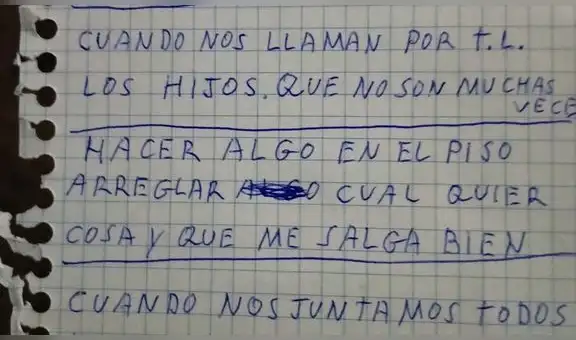 CUANDO NOS LLAMAN POR T.L.
LOS HIJOS. QUE NO SON MUCHAS
VECE
HACER ALGO EN EL PISO
ARREGLAR CUAL QUIER
COSA Y QUE ME SALGA BIEN
CUANDO NOS JUNTAMOS TODOS